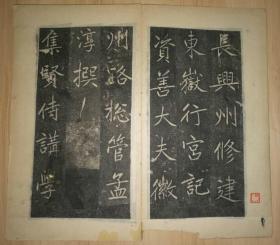 長興州修建
東嶽行宮記
資善大夫徽
州路總管孟
淳撰
集賢侍講學